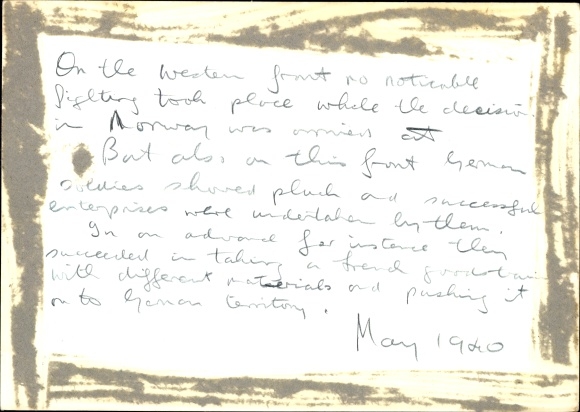 On the western front no noticable
fighting took place while the decision
in Norway was arrived at
But also on this front German
soldies showed pluck and successful
enterprises were undertaken by them.
In an advance for instance they
succeeded in taking a french goodstrain
with different materials and pushing it
on to German territory.
May 1940